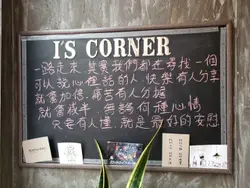 I'S CORNER
一路走來 其實我們都在尋找一個
可以說心裡話的人 快樂有人分享
就會加倍 痛苦有人分擔
就會減半 無論何種心情
只要有人懂 就是最好的安慰